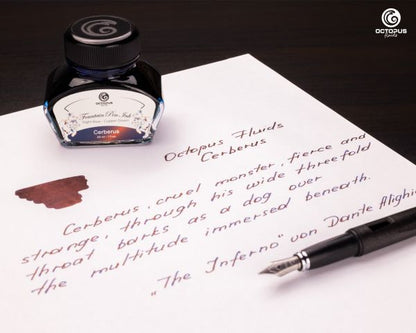 OCTOPUS
fluids
OCTOPUS
Fountain Pen Ink
Cerberus
Octopus Fluids
Cerberus
Cerberus, cruel monster, fierce and
strange, through his wide threefold
throat barks as a dog over
the multitude immersed beneath.
„The Inferno" von Dante Alighie